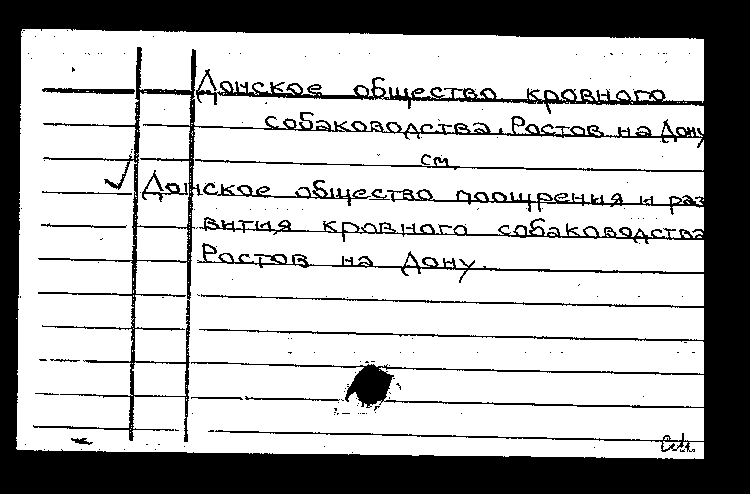 Донское общество кровного
собаководства. Ростов на Дону
см.
Донское общество поощрения и раз
вития кровного собаководства
Ростов на Дону.
см.